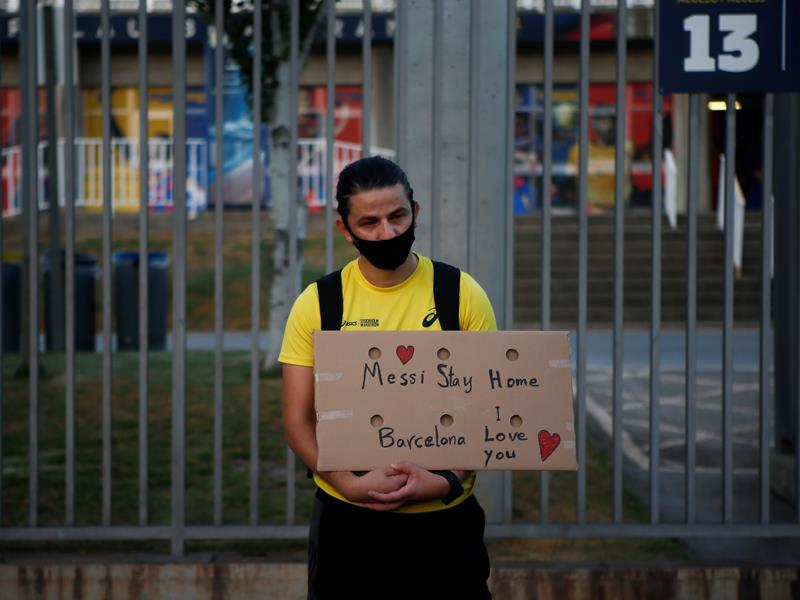 13
asics
Messi Stay Home
I
Barcelona Love
you